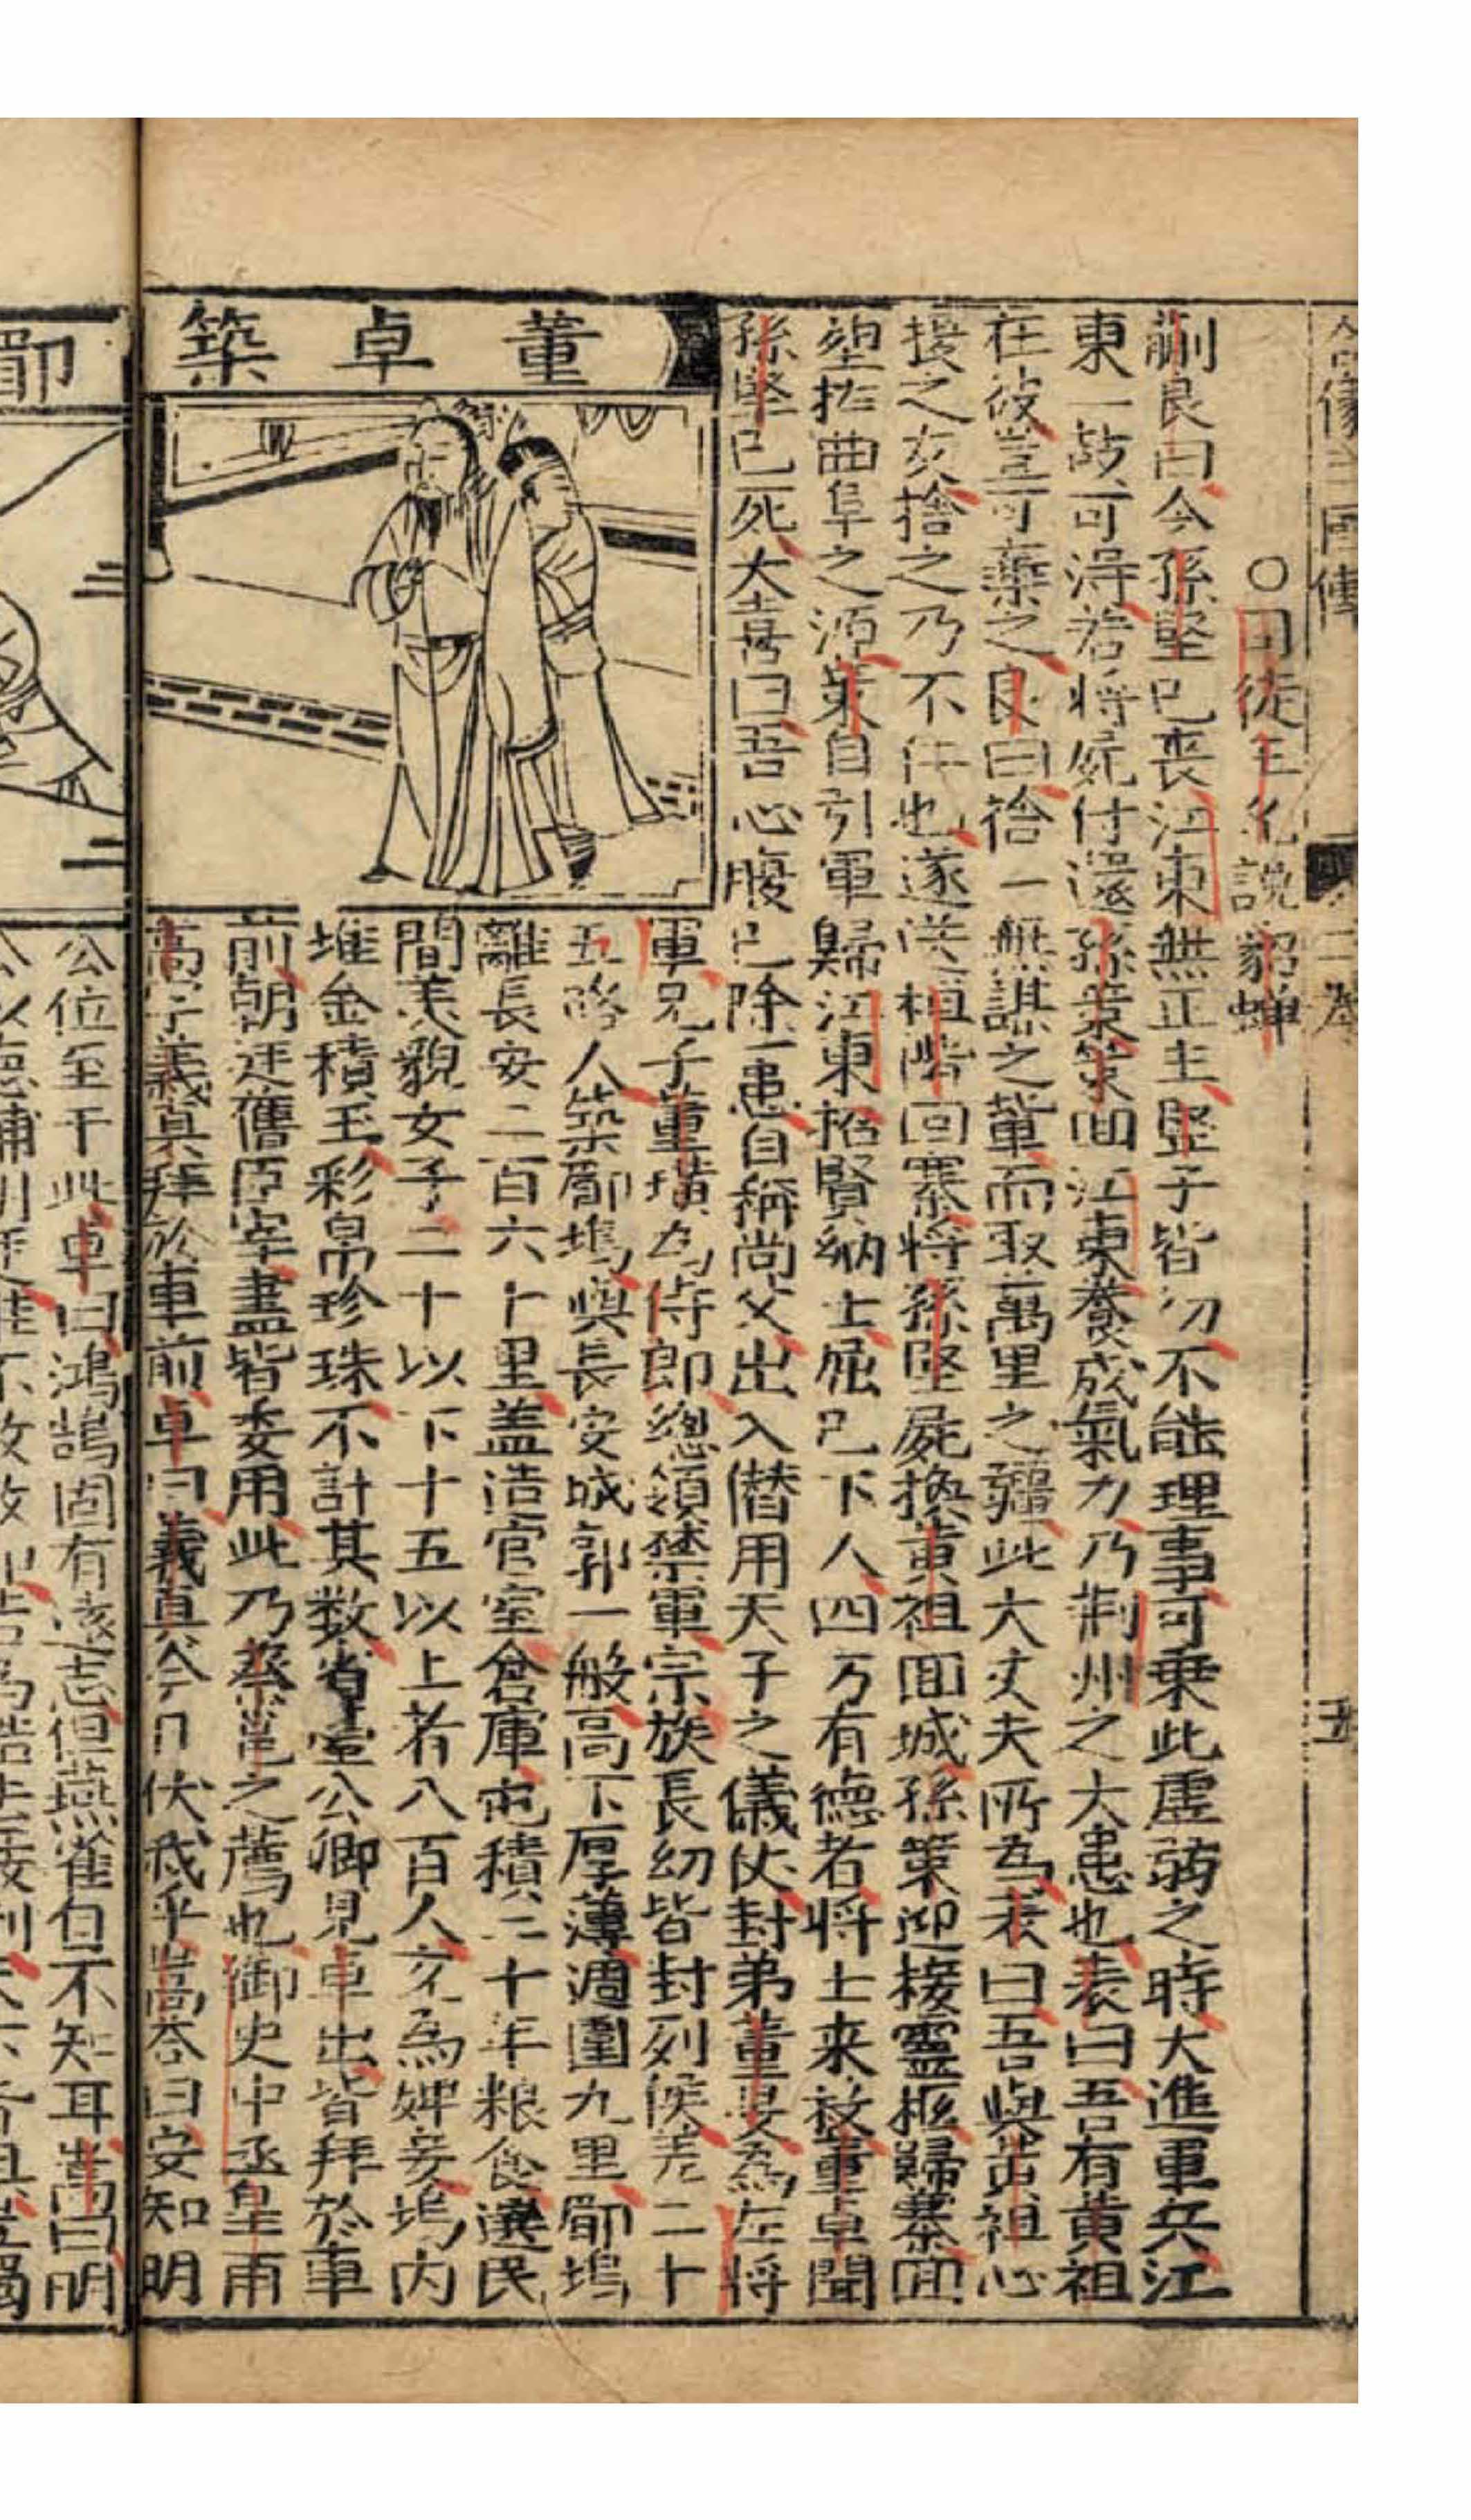 全像三國傳 卷二 五
○司徒王允說貂蟬
蒯良曰今孫堅已丧江東無正主堅子皆幼不能理事可乗此虛弱之時大進軍兵江
東一鼓可得若將屍付還孫策策囬江東養成氣力乃荆州之大患也表曰吾有黄祖
在彼豈可棄之良曰捨一無謀之輩而取萬里之疆此大丈夫所為表曰吾與黄祖心
接之友捨之乃不仁也遂送桓階回寨將孫堅屍換黄祖囬城孫策迎接靈柩歸寨囬
塟於曲阜之源策自引軍歸江東招賢納士屈己下人四方有德者將士来投董卓聞
孫堅已死大喜曰吾心腹已除一患自稱尚父出入僣用天子之儀仗封弟董旻為左將
董卓築
軍兄子董璜为侍郎總領禁軍宗族長幼皆封列侯差二十
五路人築郿塢與長安城郭一般高下厚薄週圍九里郿塢
離長安二百六十里盖造宫室倉庫屯積二十年粮食選民
間美貌女子二十以下十五以上者八百人充為婢妾塢内
堆金積玉彩帛珍珠不計其数省䑓公卿見卓出皆拜於車
前朝廷舊臣宰盡皆委用此乃蔡邕之薦也御史中丞皇甫
嵩字義真拜於車前卓曰義真今日伏我乎嵩答曰安知明
郿
公位至于此卓曰鴻鵠固有遠志但燕雀自不知耳嵩曰明